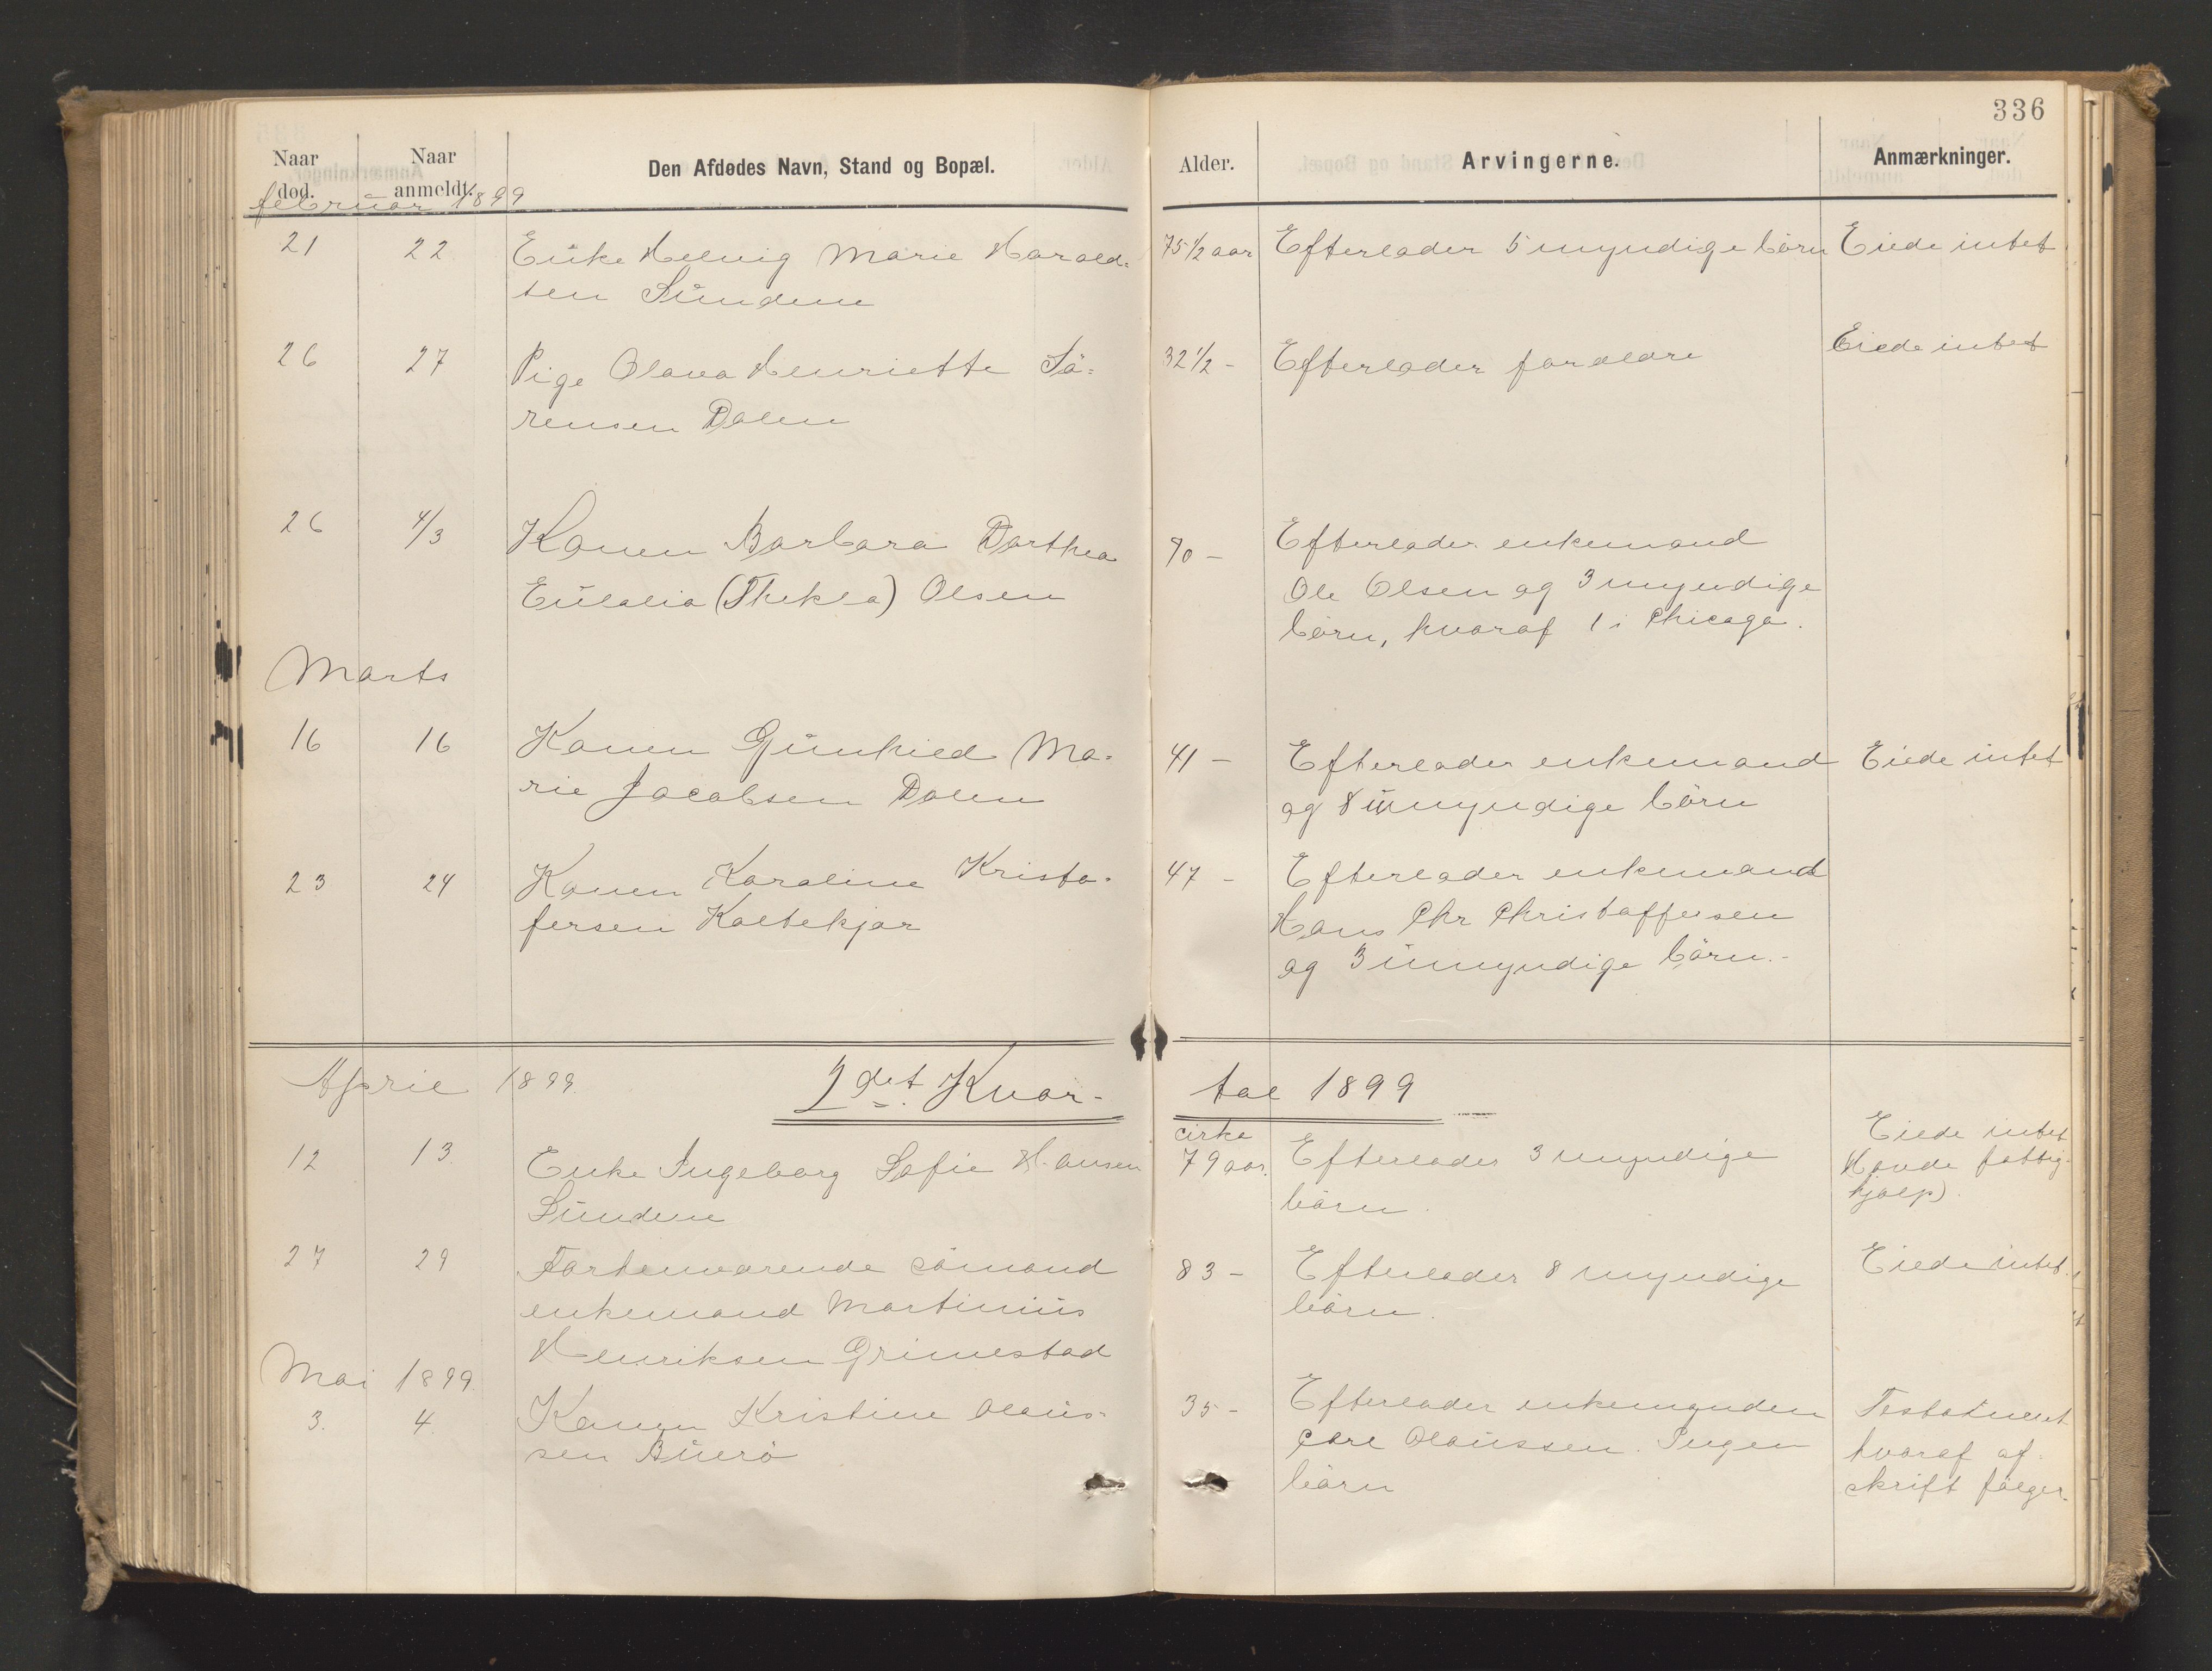 336
Naar død. Naar anmeldt. Den Afdødes Navn, Stand og Bopæl. Alder. Arvingerne. Anmærkninger.
februar 1899
21 22 Enke Helvig Marie Harald- 75 1/2 aar Efterlader 5 myndige börn Eiede intet
sen Sundene
26 27 Pige Olava Henriette Sö- 32 1/2 - Efterlader forældre Eiede intet
rensen Dalen
26 4/3 Konen Barbara Dorthea 70 - Efterlader enkemand
Eulalia (Thekla) Olsen Ole Olsen og 3 myndige
börn, hvoraf 1 i Chicago.
Marts
16 16 Konen Gunhild Ma- 41 - Efterlader enkemand Eiede intet
rie Jacobsen Dalen og 8 umyndige börn
23 24 Konen Karoline Kristo- 47 - Efterlader enkemand
fersen Koltekjær Hans Chr Christoffersen
og 3 umyndige börn.-
April 1899 2det Kvar- tal 1899
12 13 Enke Ingeborg Sofie Hansen cirka 79 aar. Efterlader 3 myndige Eiede intet
Sundene börn. Havde fattig-
hjælp)
27 29 Forhenværende sömand 83 - Efterlader 8 myndige Eiede intet.
enkemand Martinius börn.
Henriksen Grimestad
Mai 1899
3. 4 Konen Kristine Olaus- 35 - Efterlader enkemanden Testamentet
sen Buerö Carl Olaussen. Ingen hvoraf af-
börn skrift fölger.